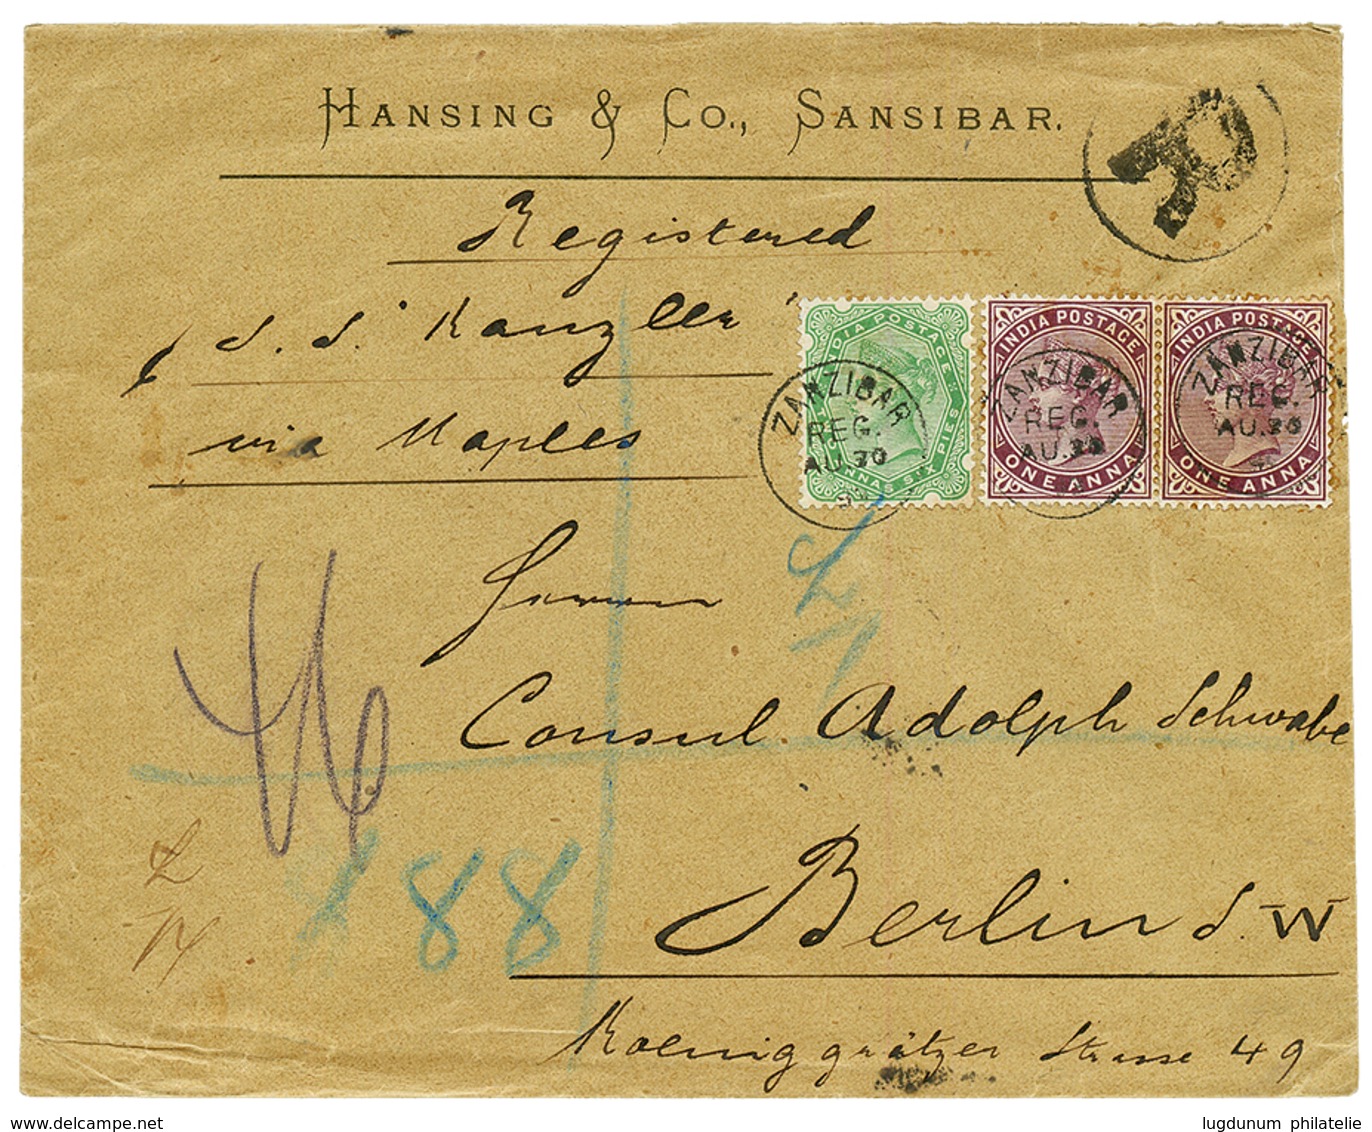 HANSING & CO., SANSIBAR.
R
Registered
S. S. "Kanzler"
via Naples
INDIA POSTAGE
ANNAS SIX PIES
ZANZIBAR
REG.
AU.30
INDIA POSTAGE
ONE ANNA
ZANZIBAR
REG.
AU.
INDIA POSTAGE
ONE ANNA
ZANZIBAR
REG.
AU.30
Herrn
Consul Adolph Schwabe
46
88
Berlin S.W
Koeniggrätzer Strasse 49
www.delcampe.net
lugdunum philatelie